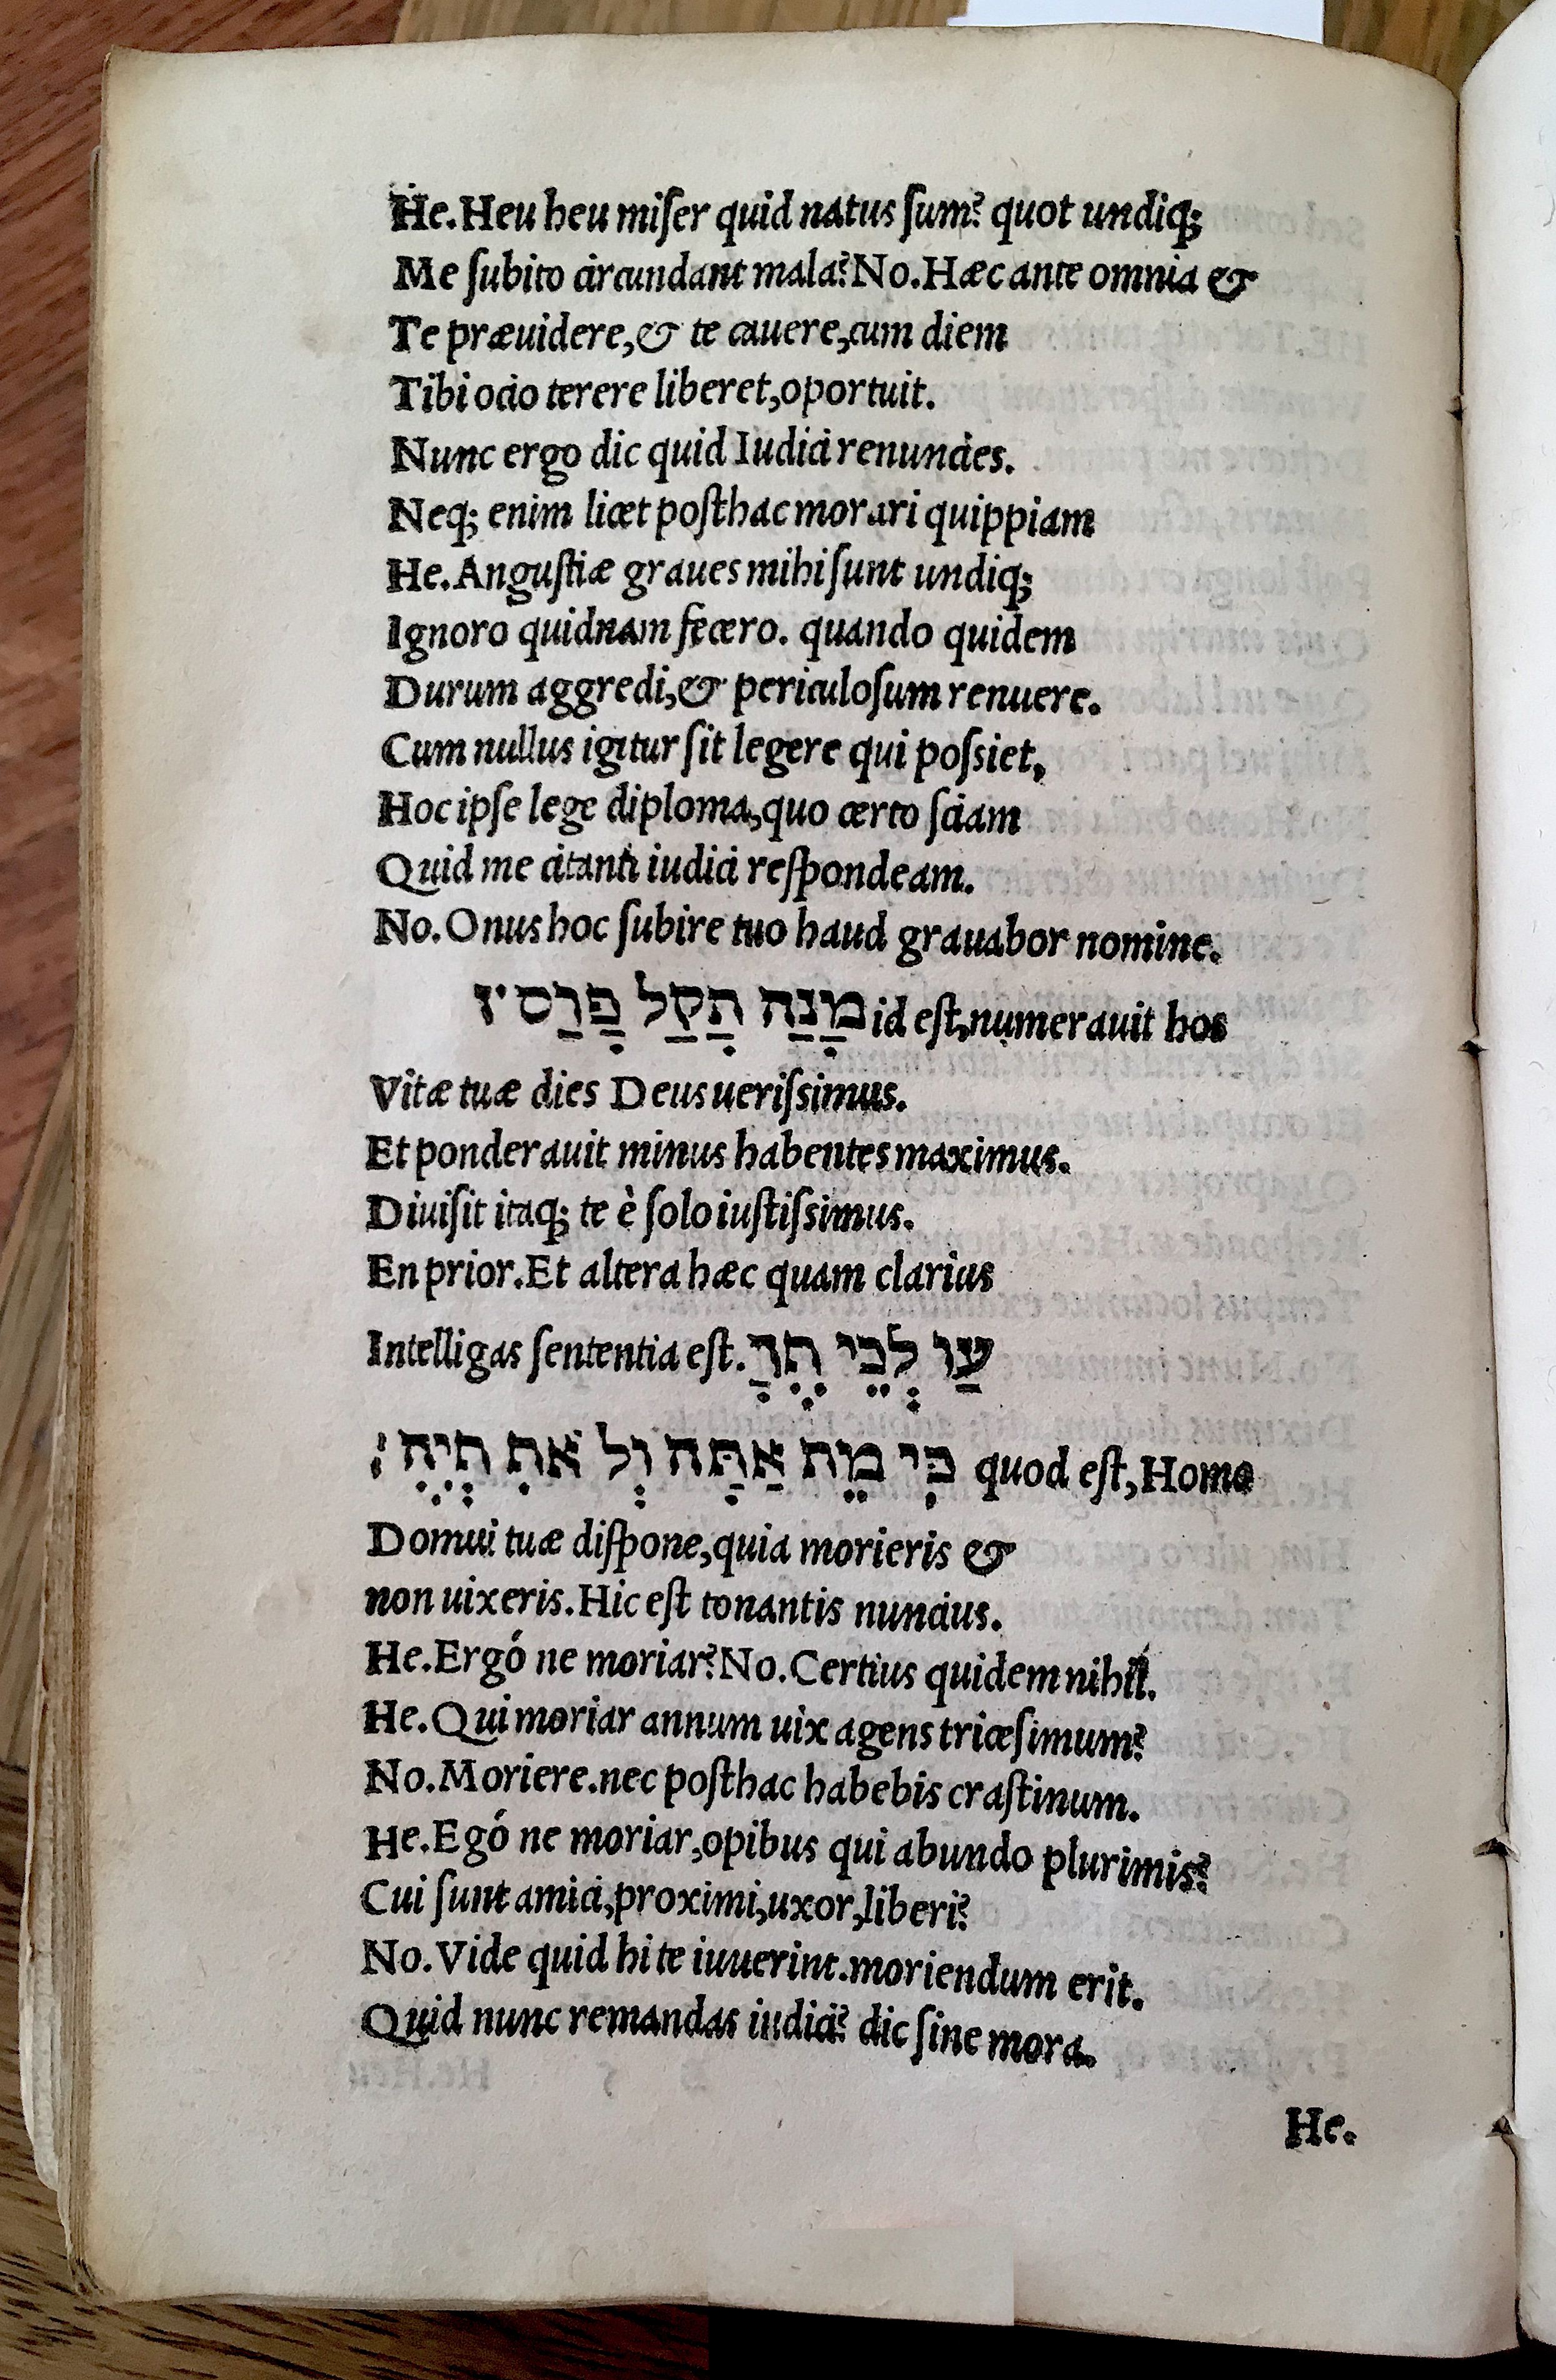 He. Heu heu miſer quid natus ſum? quot undiq;
Me ſubito circundant mala? No. Hæc ante omnia &
Te præuidere, & te cauere, cum diem
Tibi ocio terere liberet, oportuit.
Nunc ergo dic quid Iudici renuncies.
Neq; enim licet poſthac morari quippiam
He. Anguſtiæ graues mihi ſunt undiq;
Ignoro quidnam fecero. quando quidem
Durum aggredi, & periculoſum renuere.
Cum nullus igitur ſit legere qui poſsiet,
Hoc ipſe lege diploma, quo certo ſciam
Quid me citanti iudici reſpondeam.
No. Onus hoc ſubire tuo haud grauabor nomine.
מָנַה תָקַל פָרַסיז id eſt, numerauit hos
Vitæ tuæ dies Deus ueriſsimus.
Et ponderauit minus habentes maximus.
Diuiſit itaq; te è ſolo iuſtiſsimus.
En prior. Et altera hæc quam clarius
Intelligas ſententia eſt. עַו לְבֵי תֶךָ
כִּי מֵת אַתָּה וְל אתִ חְיֶה׃ quod eſt, Homo
Domui tuæ diſpone, quia morieris &
non uixeris. Hic eſt tonantis nuncius.
He. Ergó ne moriar? No. Certius quidem nihil.
He. Qui moriar annum uix agens triceſimum?
No. Moriere. nec poſthac habebis craſtinum.
He. Egó ne moriar, opibus qui abundo plurimis?
Cui ſunt amici, proximi, uxor, liberi?
No. Vide quid hi te iuuerint. moriendum erit.
Quid nunc remandas iudici? dic ſine mora.
He.